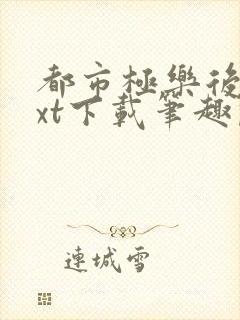 都市極樂後
xt下載筆趣
連城雪